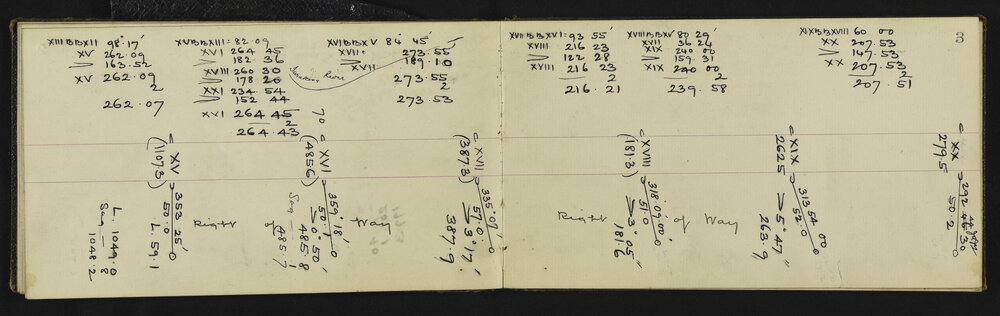 XIII B B XII 98° 17'
XV 262.09
> 163.52
XV 262.09
2
262.07
XV B B XIII = 82.09
XVI 264 45
> 182. 36
XVIII 260 30
> 178 20
XXI 234 54
> 152 44
XVI 264 45
2
264.43
XVI B B XV 84° 45'
XVII = 273.55
> 189.10
XVII
273.55
2
273.53
XVII B B XVI = 93 55'
XVIII 216 23
> 122 28
XVIII 216 23
2
216. 21
XVIII B B XVII 80 29'
XVII 36 24
XIX 240 00
> 159. 31
XIX 240 00
2
239. 58
XIX B B XVIII 60 00
XX 207.53
> 147.53
XX 207.53
2
207. 51
3
= XV
(1107.3)
353° 25'
50. 0
L. 59. 1
L. 1049. 0
Sag — 8
1048. 2
Right
of
Way
70 = XVI
(485.6)
359° 18'
50. 7
> 0° 50'
485. 8
Sag — 1
485. 7
= XVII
(387.3)
335° 07'
57. 0
> 3° 17'
387. 9
Right of Way
= XVIII
(181.3)
318° 07' 00"
51. 0
> 3° 05"
181. 6
= XIX
262.5
313 54 00
52. 0
> 5° 47"
263. 9
= XX
279. 5
292 46 30
50. 2